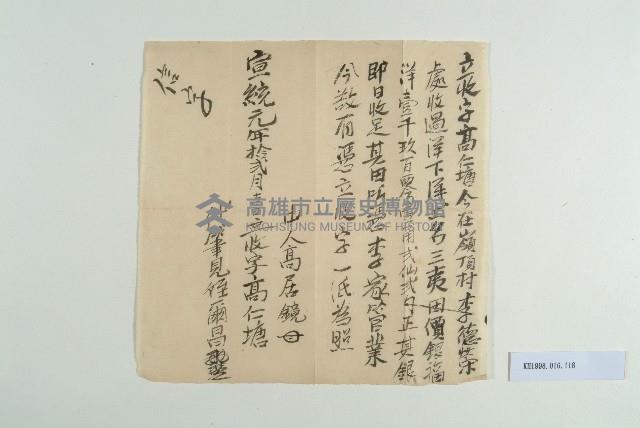 立收字高仁塘今在嶺頂村李德榮
處收過洋下洋名三夷田價銀福
洋壹千玖百零 用弍仙弍 正其銀
即日收足其田 李家管業
今欲有憑立收字一紙為照
中人高居鏡
宣統元年拾弍月 立收字高仁塘
代筆見侄爾昌
高雄市立歷史博物館
KAOHSIUNG MUSEUM OF HISTORY
KH1998.016.118